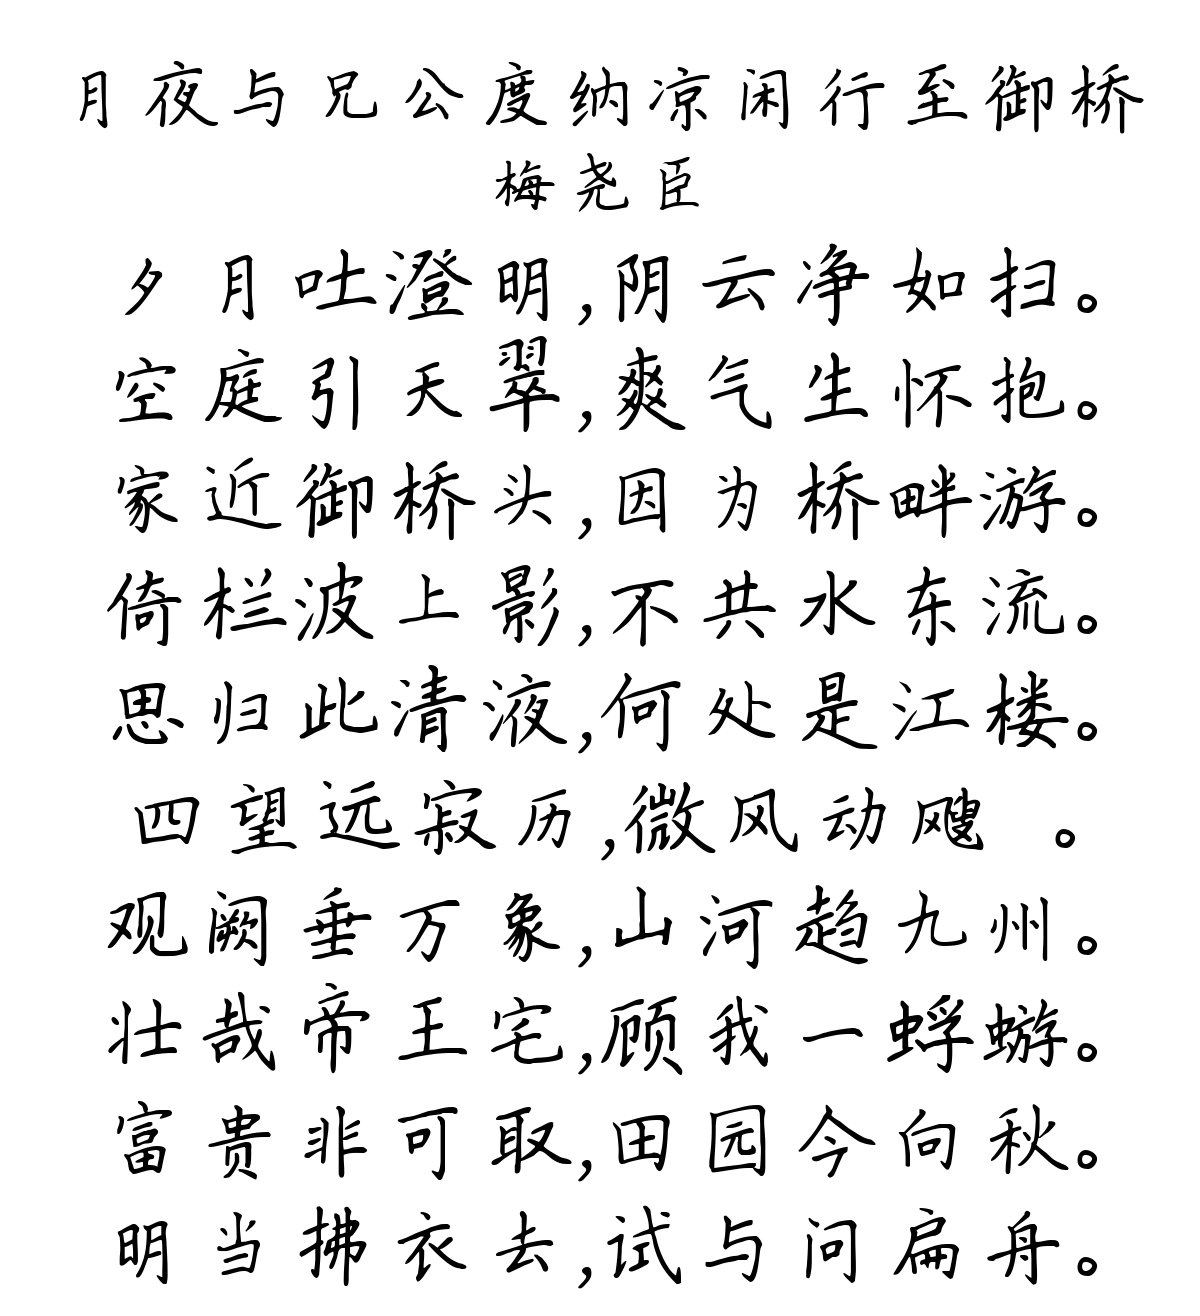 月夜与兄公度纳凉闲行至御桥
梅尧臣
夕月吐澄明,阴云净如扫。
空庭引天翠,爽气生怀抱。
家近御桥头,因为桥畔游。
倚栏波上影,不共水东流。
思归此清液,何处是江楼。
四望远寂历,微风动飕 。
观阙垂万象,山河趋九州。
壮哉帝王宅,顾我一蜉蝣。
富贵非可取,田园今向秋。
明当拂衣去,试与问扁舟。